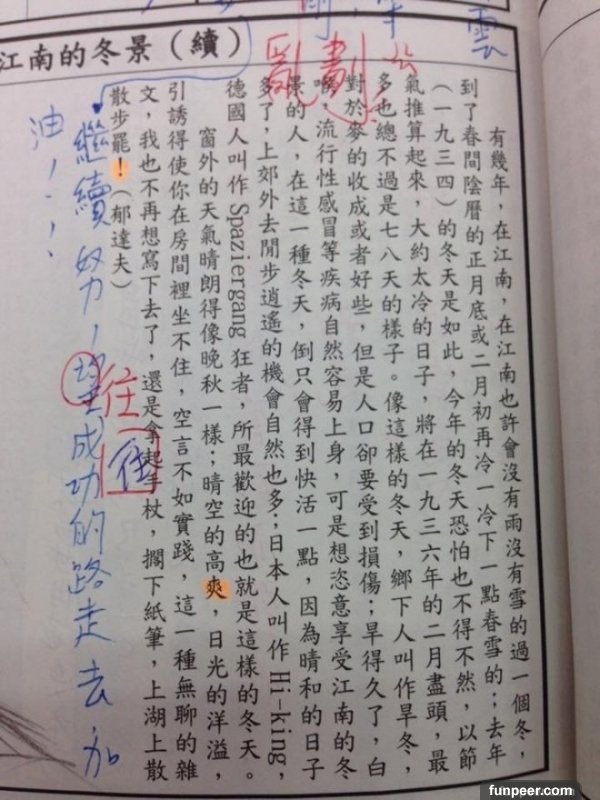 雲
江南的冬景（續）
亂劃
有幾年，在江南，在江南也許會沒有雨沒有雪的過一個冬，
到了春間陰曆的正月底或二月初再冷一冷下一點春雪的；去年
（一九三四）的冬天是如此，今年的冬天恐怕也不得不然，以節
氣推算起來，大約太冷的日子，將在一九三六年的二月盡頭，最
多也總不過是七八天的樣子。像這樣的冬天，鄉下人叫作旱冬，
對於麥的收成或者好些，但是人口卻要受到損傷；旱得久了，白
喉，流行性感冒等疾病自然容易上身，可是想恣意享受江南的冬
景的人，在這一種冬天，倒只會得到快活一點，因為晴和的日子
多了，上郊外去閒步逍遙的機會自然也多；日本人叫作 Hi-king，
德國人叫作 Spaziergang 狂者，所最歡迎的也就是這樣的冬天。
窗外的天氣晴朗得像晚秋一樣；晴空的高爽，日光的洋溢，
引誘得使你在房間裡坐不住，空言不如實踐，這一種無聊的雜
文，我也不再想寫下去了，還是拿起手杖，擱下紙筆，上湖上散
散步罷！（郁達夫）
往
往
繼續努力，望成功的路走去加
油！！
funpeer.com